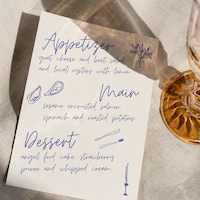 Appetizer
goat cheese and beet salad
and local oysters with lemon
Main
sesame encrusted salmon
spinach and roasted potatoes
Dessert
angel food cake, strawberry
puree and whipped cream